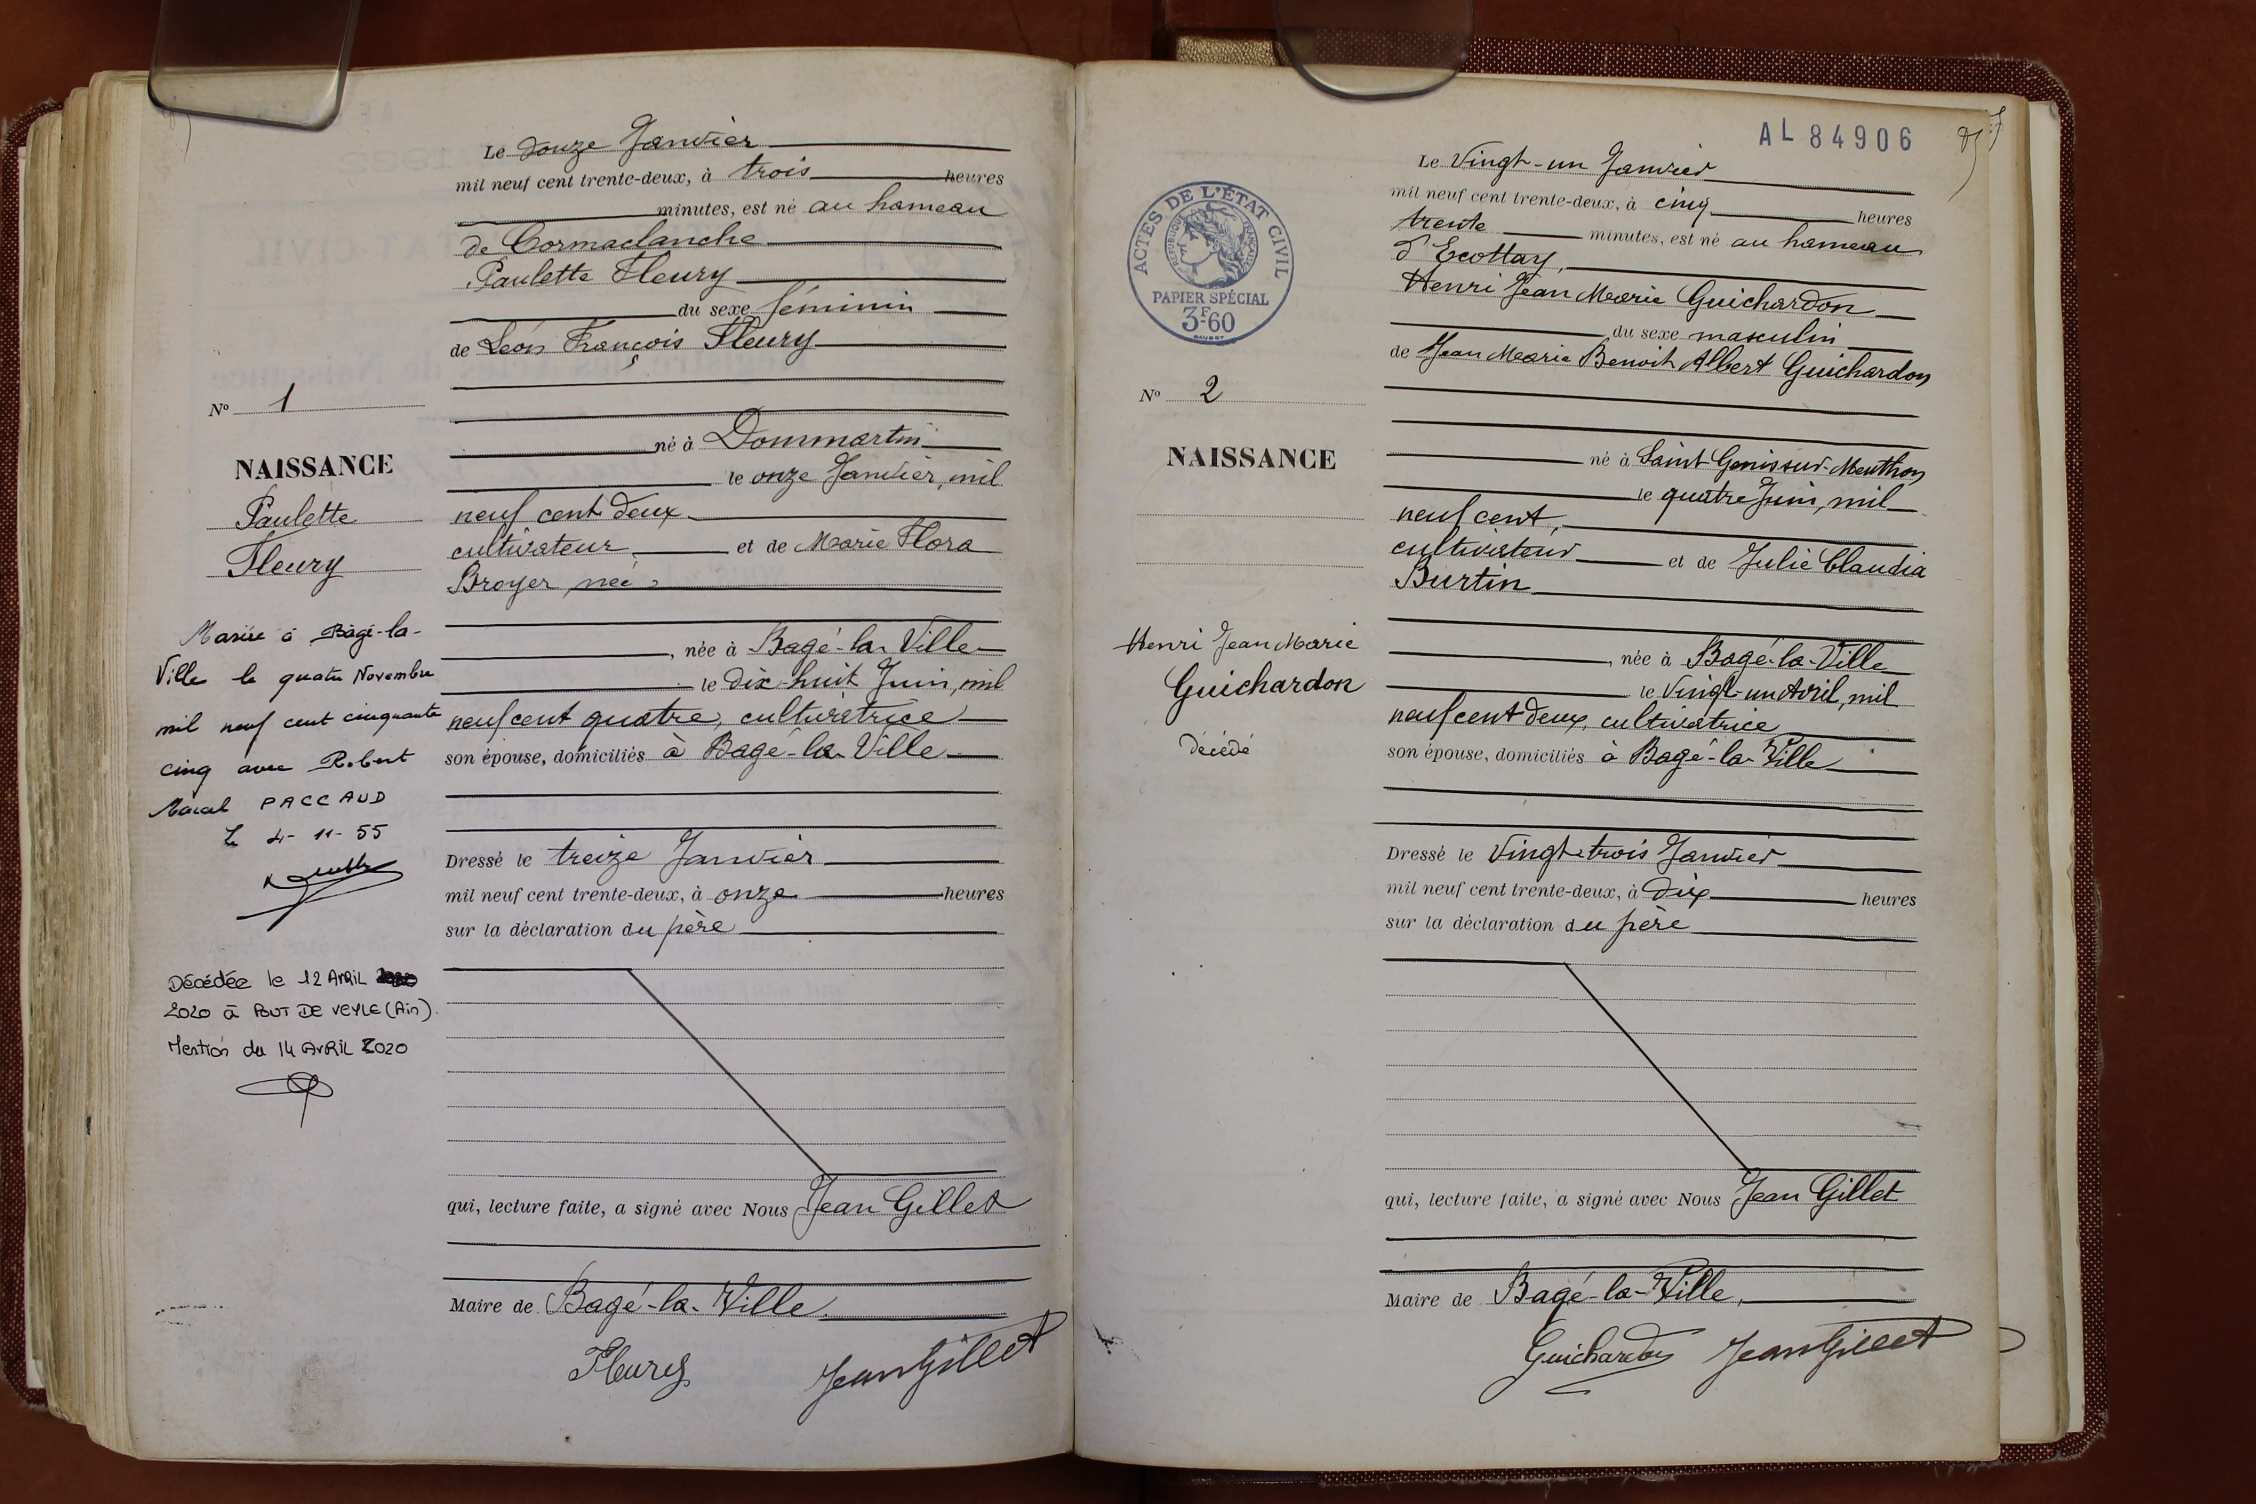 Le douze Janvier
mil neuf cent trente-deux, à trois heures
minutes, est né au hameau
de Cormaclanche
Paulette Fleury
du sexe féminin
de Léon François Fleury
né à Dommartin
le onze Janvier, mil
neuf cent deux
cultivateur et de Marie Flora
Broyer, née
, née à Bagé-la-Ville
le dix-huit Juin, mil
neuf cent quatre, cultivatrice
son épouse, domiciliés à Bagé-la-Ville
Dressé le treize Janvier
mil neuf cent trente-deux, à onze heures
sur la déclaration du père
qui, lecture faite, a signé avec Nous Jean Gillet
Maire de Bagé-la-Ville.
Fleury Jean Gillet
No 1
NAISSANCE
Paulette
Fleury
Mariée à Bâgé-la-
Ville le quatre Novembre
mil neuf cent cinquante
cinq avec Robert
Marcel PACCAUD
Le 4-11-55
Décédée le 12 AVRIL
2020 à PONT DE VEYLE (Ain).
Mention du 14 AVRIL 2020
AL 84906
ACTES DE L'ÉTAT CIVIL
RÉPUBLIQUE FRANÇAISE
PAPIER SPÉCIAL
3F60
No 2
NAISSANCE
Henri Jean Marie
Guichardon
décédé
Le Vingt-un Janvier
mil neuf cent trente-deux, à cinq heures
trente minutes, est né au hameau
d'Ecottay,
Henri Jean Marie Guichardon
du sexe masculin
de Jean Marie Benoit Albert Guichardon
né à Saint Genis sur Menthon
le quatre Juin, mil
neuf cent,
cultivateur et de Julie Claudia
Burtin
, née à Bagé-la-Ville
le Vingt-un Avril, mil
neuf cent deux, cultivatrice
son épouse, domiciliés à Bagé-la-Ville
Dressé le Vingt-trois Janvier
mil neuf cent trente-deux, à Dix heures
sur la déclaration du père
qui, lecture faite, a signé avec Nous Jean Gillet
Maire de Bagé-la-Ville,
Guichardon Jean Gillet